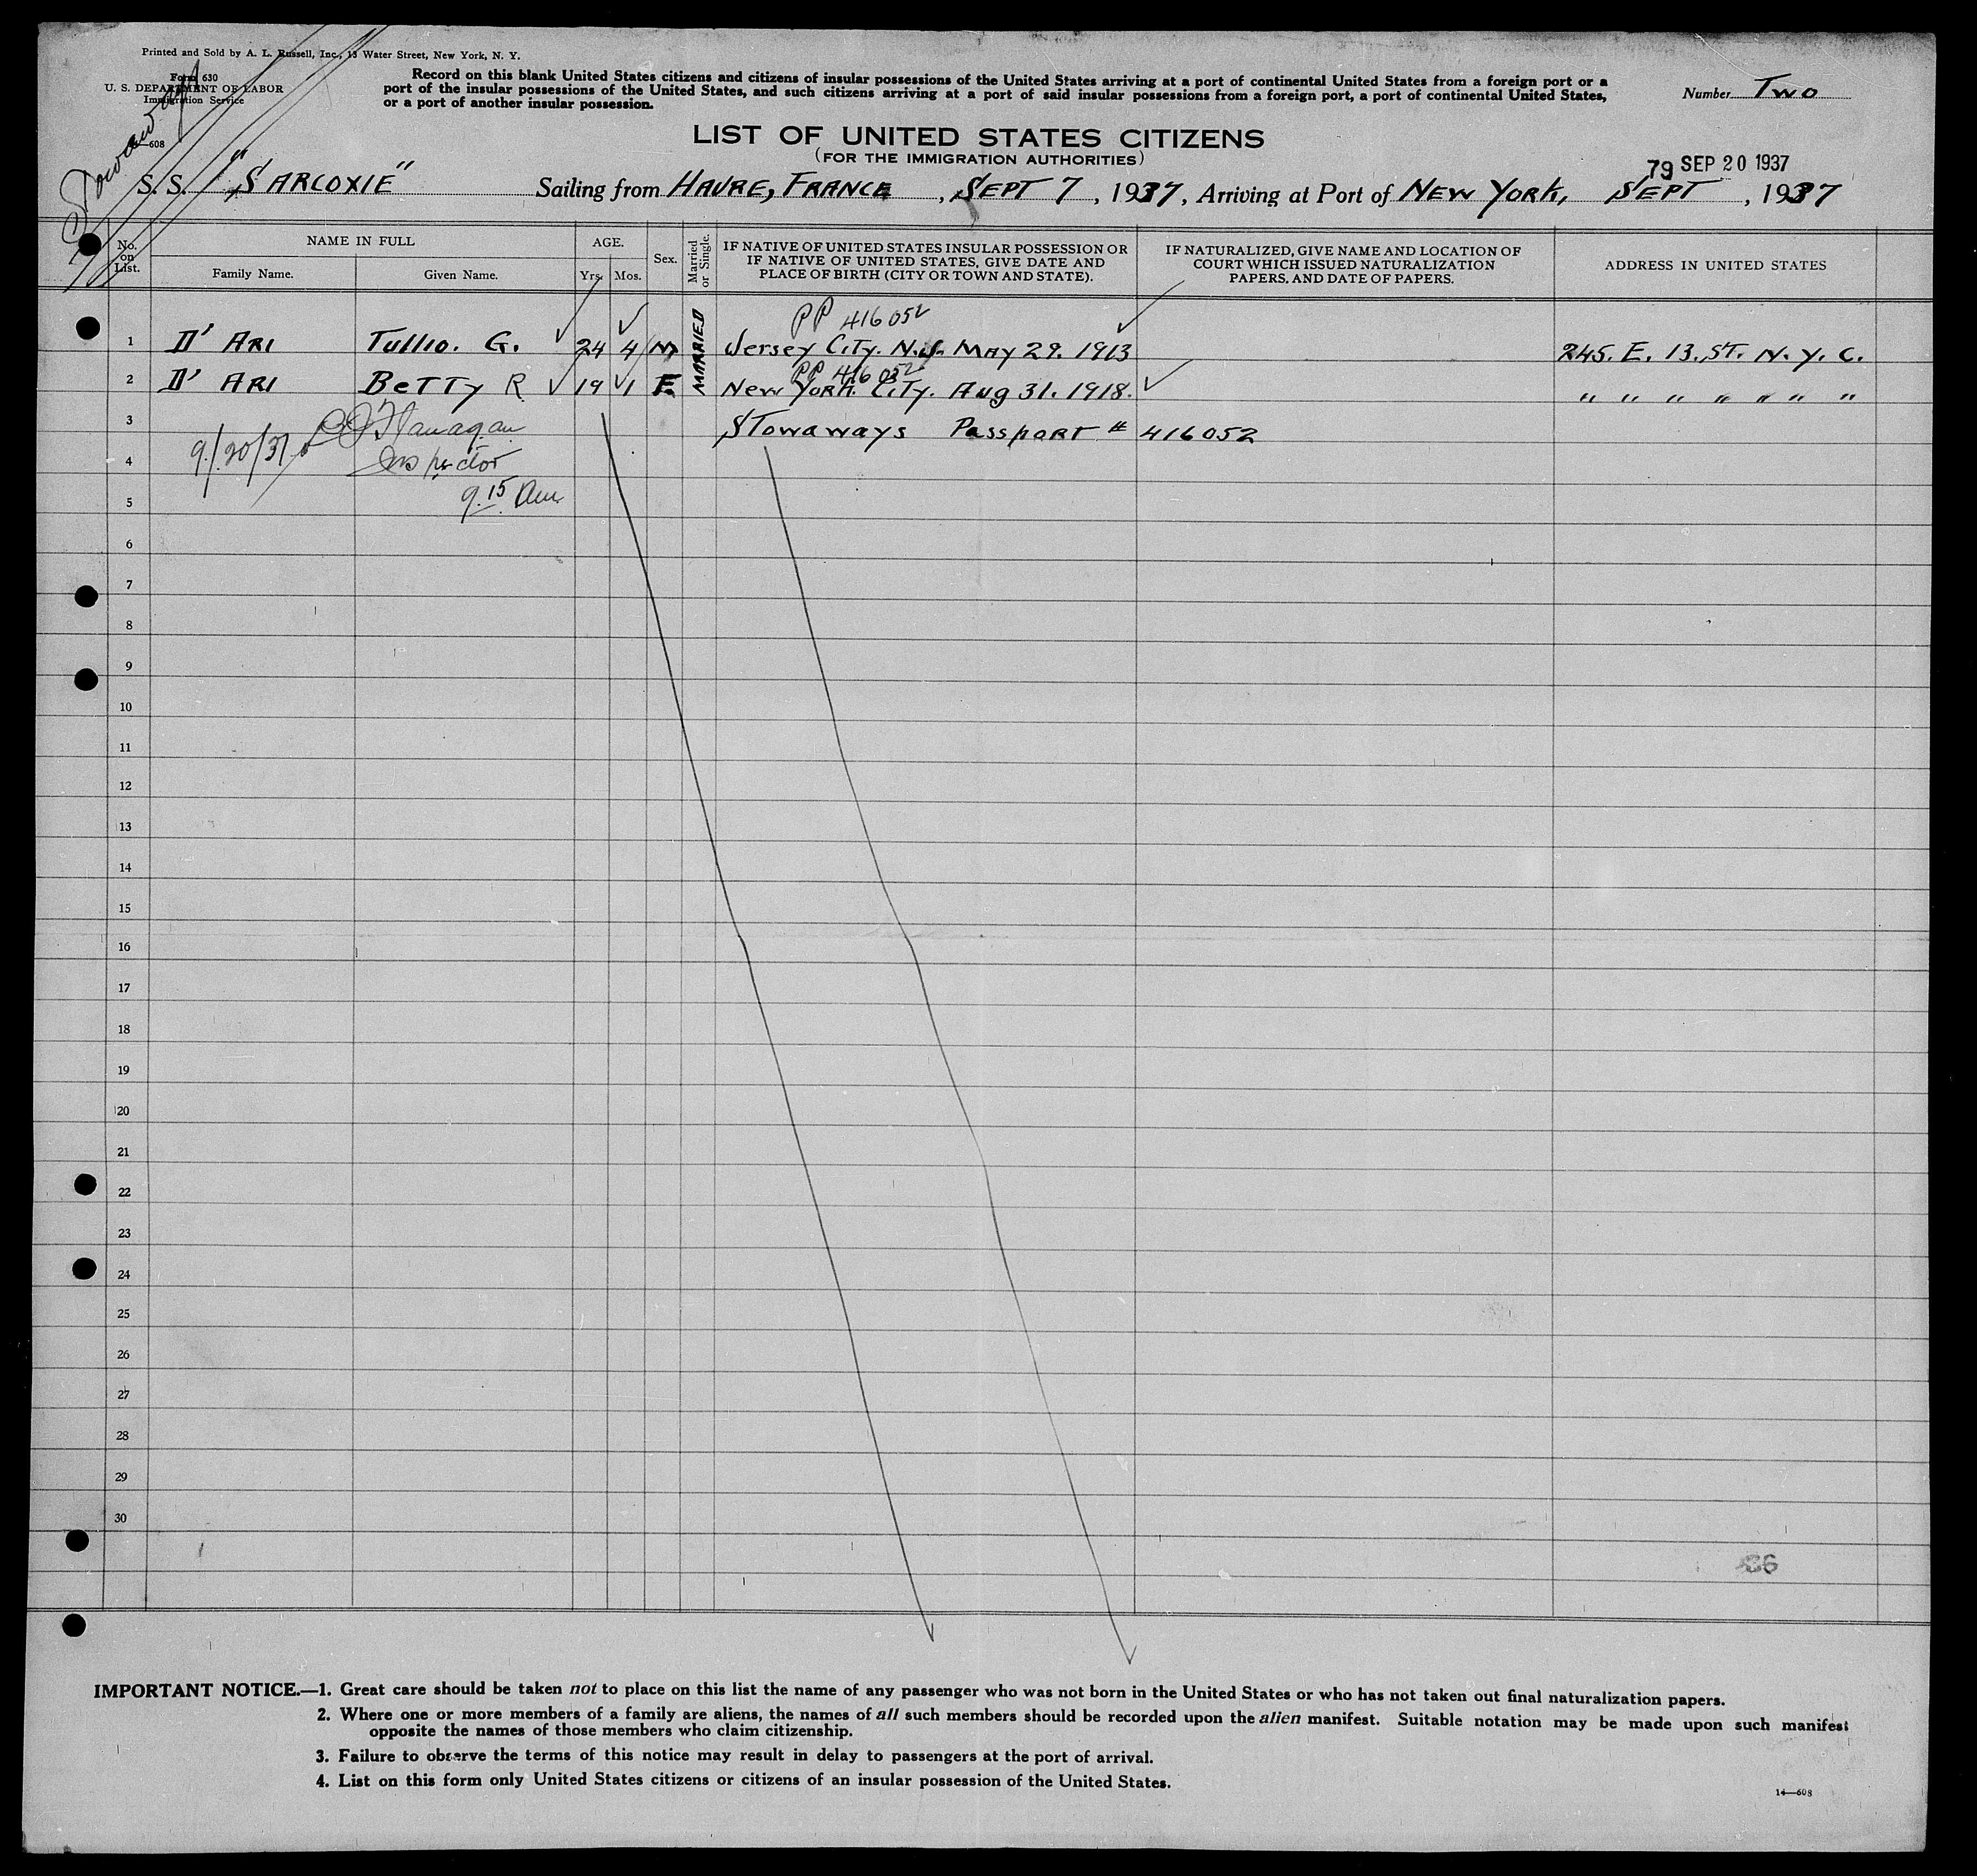 Printed and Sold by A. L. Russell, Inc., 13 Water Street, New York, N. Y.
Form 630
U. S. DEPARTMENT OF LABOR
Immigration Service
—608
Stowaway
Record on this blank United States citizens and citizens of insular possessions of the United States arriving at a port of continental United States from a foreign port or a
port of the insular possessions of the United States, and such citizens arriving at a port of said insular possessions from a foreign port, a port of continental United States,
or a port of another insular possession.
Number Two
LIST OF UNITED STATES CITIZENS
(FOR THE IMMIGRATION AUTHORITIES)
79 SEP 20 1937
S. S. "SARCOXIE" Sailing from HAVRE, FRANCE, SEPT 7, 1937, Arriving at Port of NEW YORK, SEPT, 1937
No. on List.
NAME IN FULL
Family Name.
Given Name.
AGE.
Yrs.
Mos.
Sex.
Married or Single.
IF NATIVE OF UNITED STATES INSULAR POSSESSION OR
IF NATIVE OF UNITED STATES, GIVE DATE AND
PLACE OF BIRTH (CITY OR TOWN AND STATE).
IF NATURALIZED, GIVE NAME AND LOCATION OF
COURT WHICH ISSUED NATURALIZATION
PAPERS, AND DATE OF PAPERS.
ADDRESS IN UNITED STATES
PP 416052
1 D' ARI Tullio. G. 24 4 M MARRIED Jersey City. N.J. May 29. 1913 245. E. 13. ST. N. Y. C.
PP 416052
2 D' ARI BETTY R 19 1 F New York. City. Aug 31. 1918. " " " " " " "
3 Stowaways Passport # 416052
9/20/37 Flanagan
4 Inspector
5 9.15 Am
6
7
8
9
10
11
12
13
14
15
16
17
18
19
20
21
22
23
24
25
26
27
28
29
30
36
IMPORTANT NOTICE.—1. Great care should be taken not to place on this list the name of any passenger who was not born in the United States or who has not taken out final naturalization papers.
2. Where one or more members of a family are aliens, the names of all such members should be recorded upon the alien manifest. Suitable notation may be made upon such manifest
opposite the names of those members who claim citizenship.
3. Failure to observe the terms of this notice may result in delay to passengers at the port of arrival.
4. List on this form only United States citizens or citizens of an insular possession of the United States.
14—608